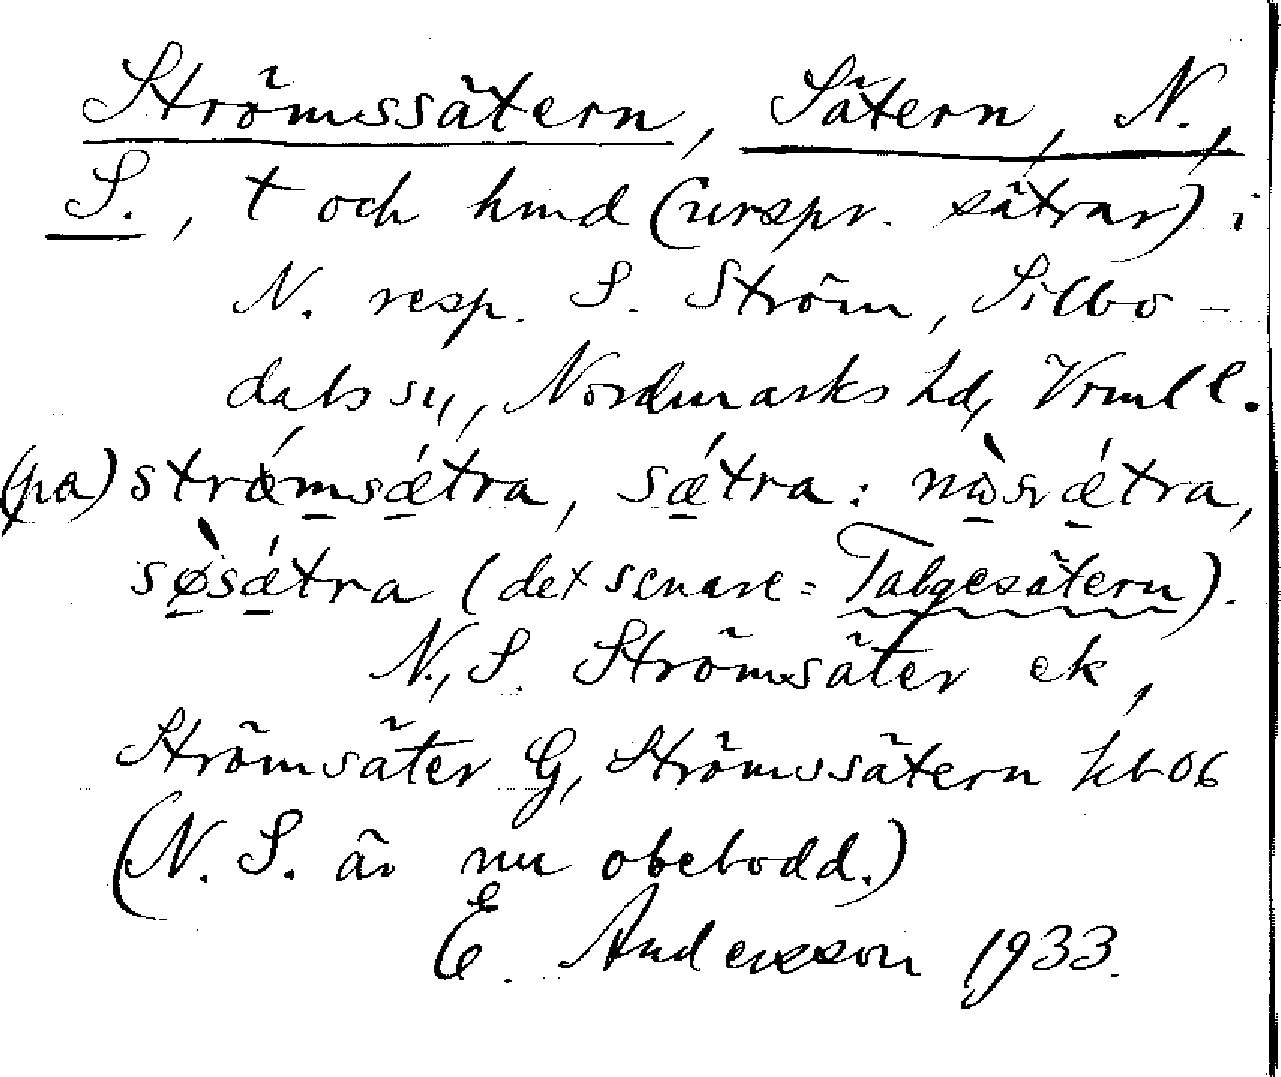 Strömssätern, Sätern, N.,
S., t och hmd (urspr. sätrar) i
N. resp. S. Ström, Silbo-
dals sn, Nordmarks hd, Vrml l.
(på) strǿmsǽtra, sǽtra: nòsǽtra,
sø̀sǽtra (det senare = Talgesätern).
N., S. Strömsäter ek,
Strömsäter G, Strömssätern kb 06
(N. S. är nu obebodd.)
E. Andersson 1933.